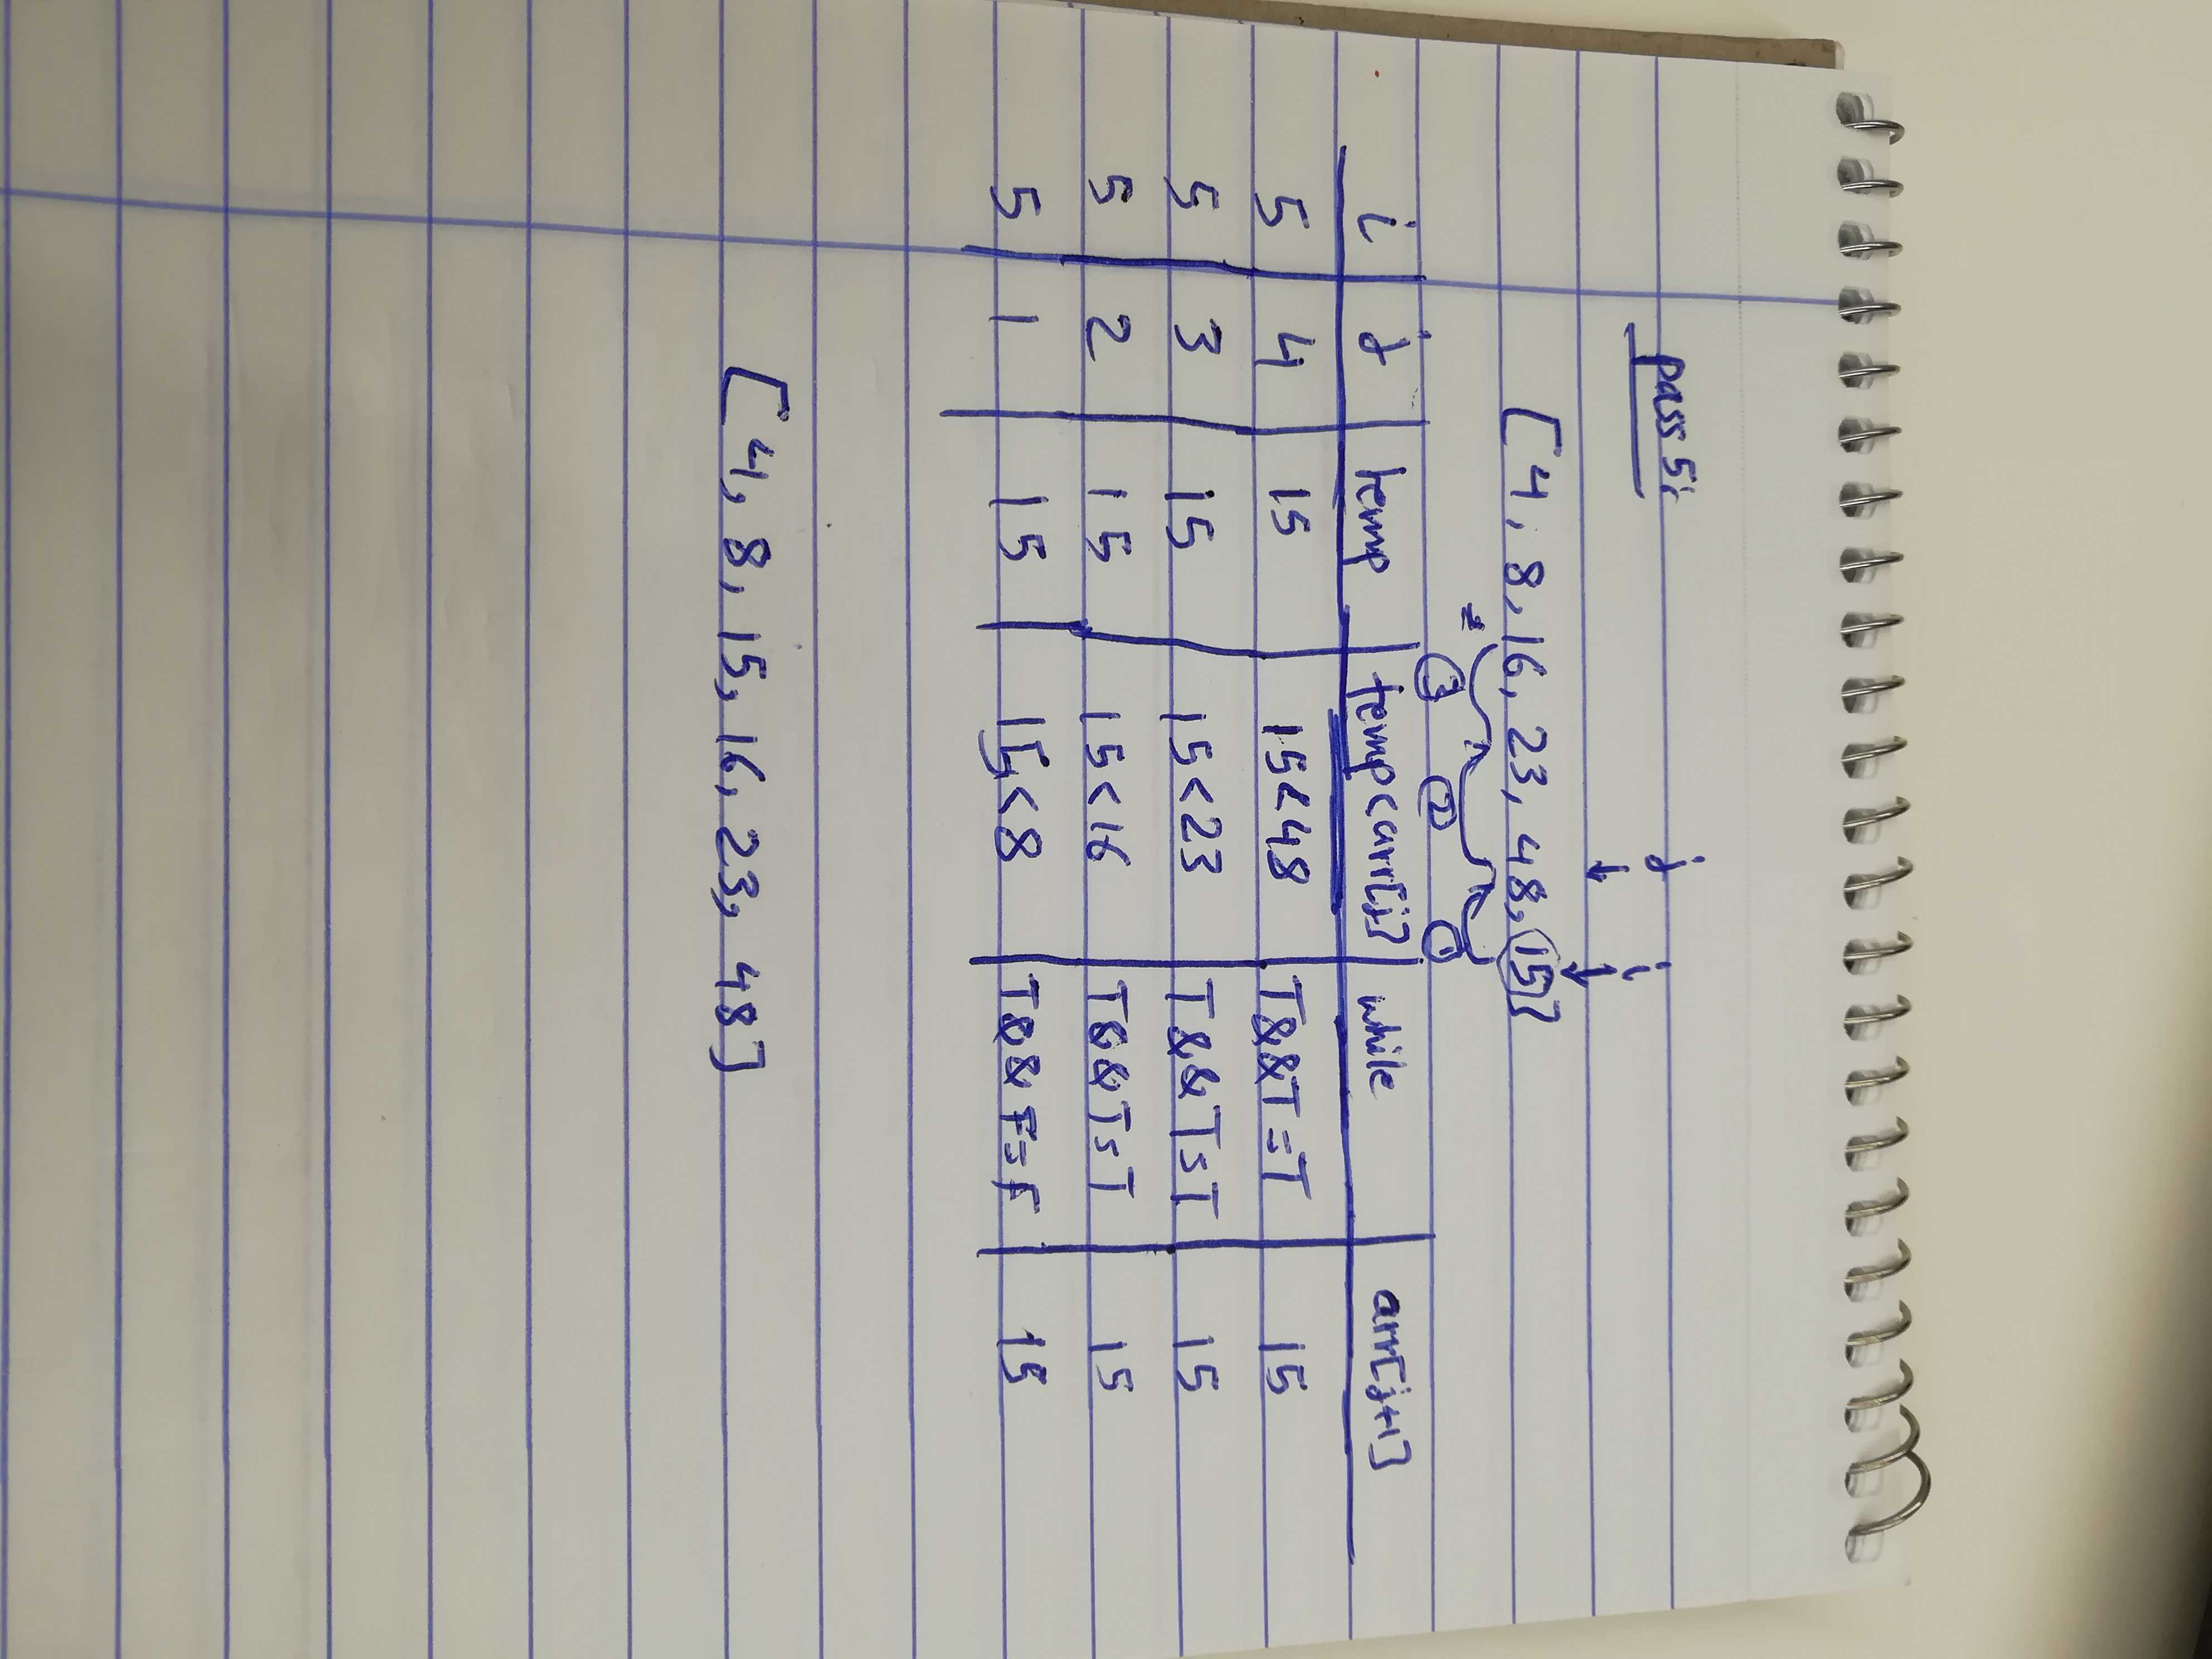 pass 5:
j
i
[4, 8, 16, 23, 48, 15]
3 2 1
i j temp temp<arr[j] while arr[j+1]
5 4 15 15<48 T&&T=T 15
5 3 15 15<23 T&&T=T 15
5 2 15 15<16 T&&T=T 15
5 1 15 15<8 T&&F=F 15
[4, 8, 15, 16, 23, 48]